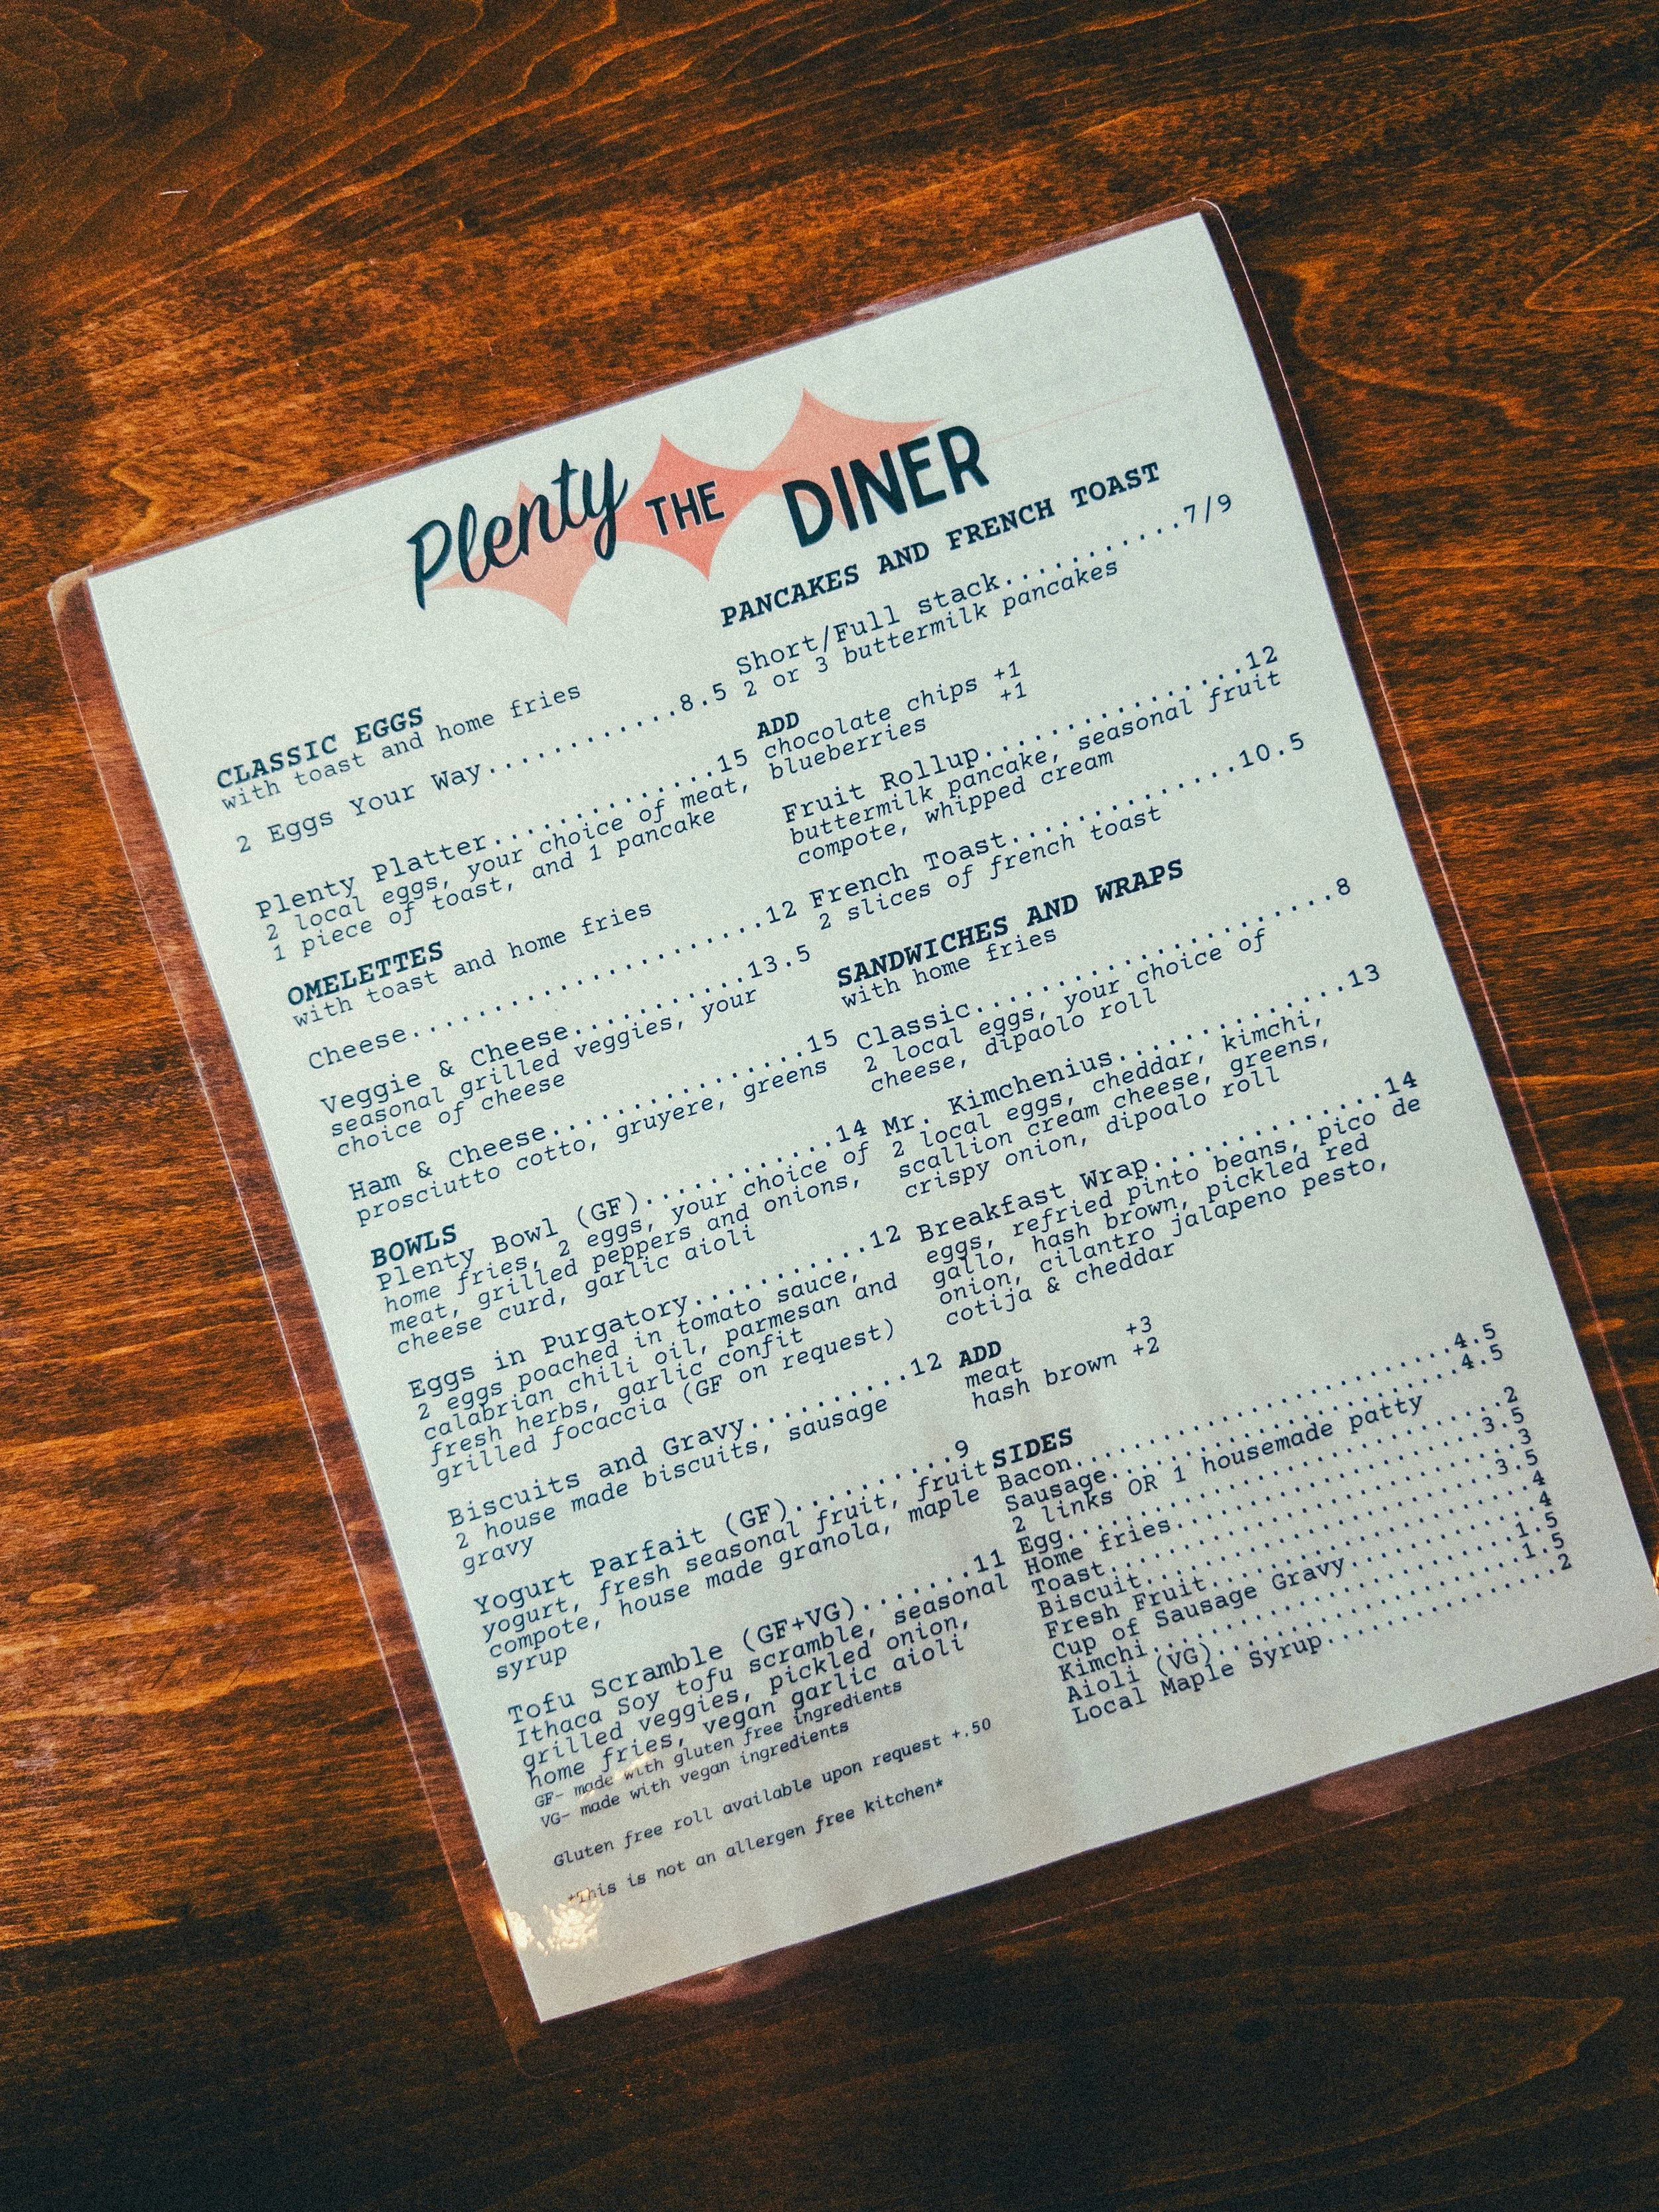 Plenty THE DINER
CLASSIC EGGS
with toast and home fries
2 Eggs Your Way............8.5
Plenty Platter..............15
2 local eggs, your choice of meat,
1 piece of toast, and 1 pancake
OMELETTES
with toast and home fries
Cheese......................12
Veggie & Cheese...........13.5
seasonal grilled veggies, your
choice of cheese
Ham & Cheese................15
prosciutto cotto, gruyere, greens
BOWLS
Plenty Bowl (GF)............14
home fries, 2 eggs, your choice of
meat, grilled peppers and onions,
cheese curd, garlic aioli
Eggs in Purgatory...........12
2 eggs poached in tomato sauce,
calabrian chili oil, parmesan and
fresh herbs, garlic confit
grilled focaccia (GF on request)
Biscuits and Gravy..........12
2 house made biscuits, sausage
gravy
Yogurt Parfait (GF)..........9
yogurt, fresh seasonal fruit, fruit
compote, house made granola, maple
syrup
Tofu Scramble (GF+VG).......11
Ithaca Soy tofu scramble, seasonal
grilled veggies, pickled onion,
home fries, vegan garlic aioli
GF- made with gluten free ingredients
VG- made with vegan ingredients
Gluten free roll available upon request +.50
*This is not an allergen free kitchen*
PANCAKES AND FRENCH TOAST
Short/Full stack...........7/9
2 or 3 buttermilk pancakes
ADD
chocolate chips +1
blueberries +1
Fruit Rollup................12
buttermilk pancake, seasonal fruit
compote, whipped cream
French Toast..............10.5
2 slices of french toast
SANDWICHES AND WRAPS
with home fries
Classic......................8
2 local eggs, your choice of
cheese, dipaolo roll
Mr. Kimchenius..............13
2 local eggs, cheddar, kimchi,
scallion cream cheese, greens,
crispy onion, dipoalo roll
Breakfast Wrap..............14
eggs, refried pinto beans, pico de
gallo, hash brown, pickled red
onion, cilantro jalapeno pesto,
cotija & cheddar
ADD
meat +3
hash brown +2
SIDES
Bacon......................4.5
Sausage....................4.5
2 links OR 1 housemade patty
Egg..........................2
Home fries.................3.5
Toast........................3
Biscuit....................3.5
Fresh Fruit..................4
Cup of Sausage Gravy.........4
Kimchi.....................1.5
Aioli (VG).................1.5
Local Maple Syrup............2